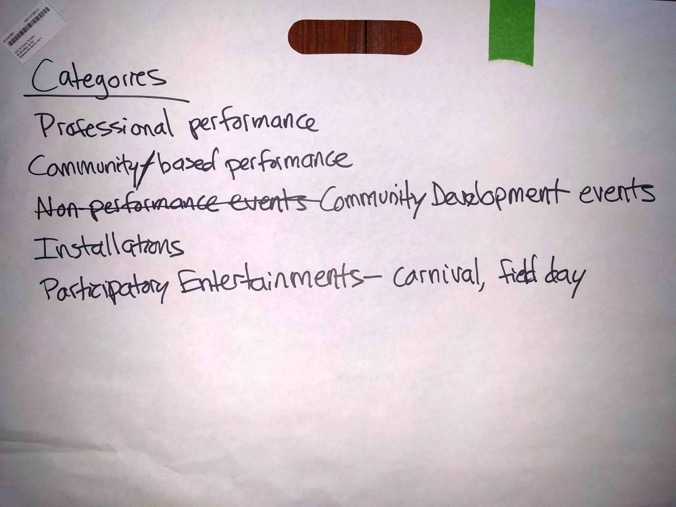 Categories
Professional performance
Community/based performance
Non performance events Community Development events
Installations
Participatory Entertainments— carnival, field day